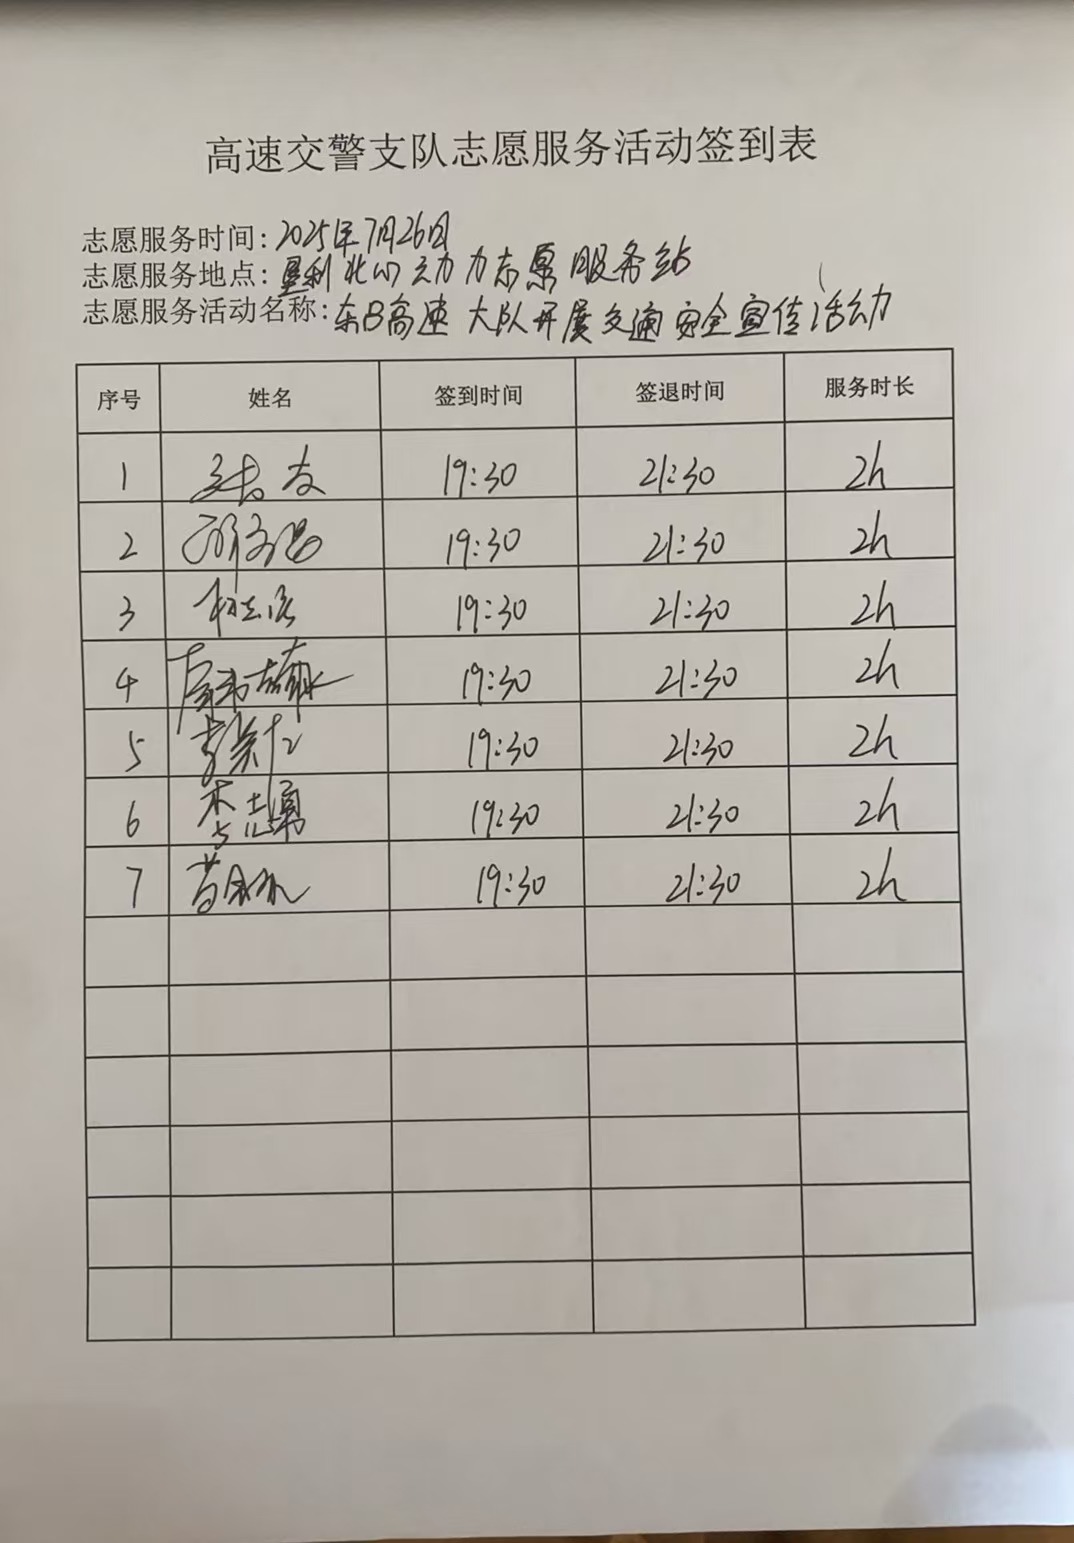 高速交警支队志愿服务活动签到表
志愿服务时间：2025年7月26日
志愿服务地点：垦利北 动力志愿服务站
志愿服务活动名称：东B高速大队开展交通安全宣传活动
序号 姓名 签到时间 签退时间 服务时长
1 19:30 21:30 2h
2 19:30 21:30 2h
3 19:30 21:30 2h
4 19:30 21:30 2h
5 19:30 21:30 2h
6 李志勇 19:30 21:30 2h
7 19:30 21:30 2h